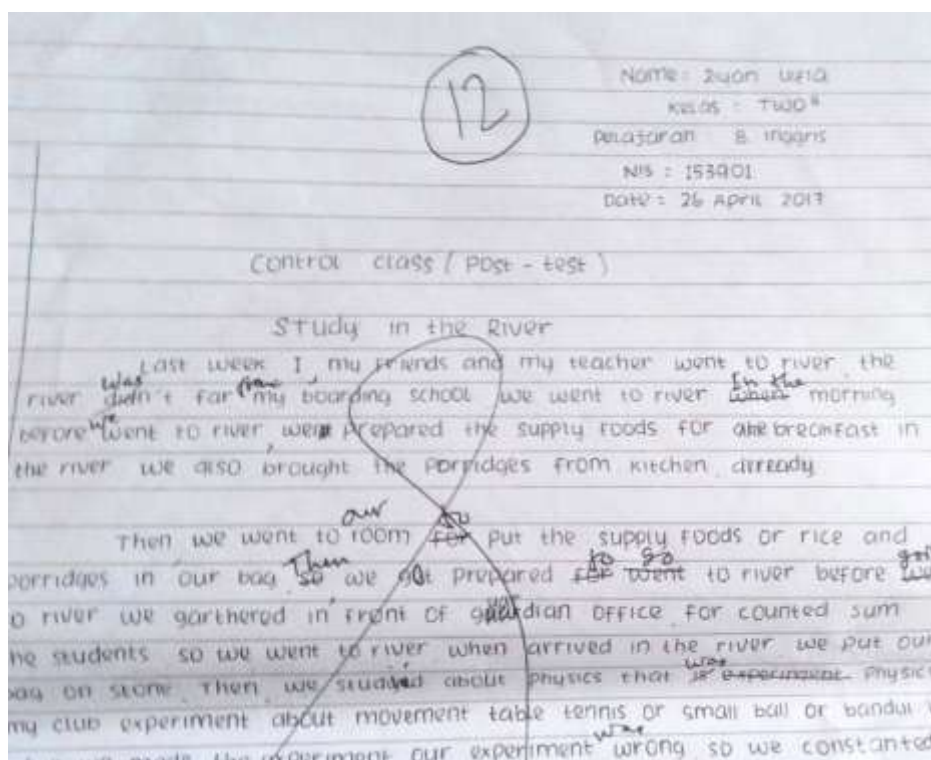 12
Name : 
Kelas : TWO B
Pelajaran B. Inggris
NIS : 153901
Date : 26 April 2017
Control class ( Post - test )
Study in the River
Last week I, my friends and my teacher went to river the
was from In the
river didn't far my boarding school we went to river when morning
we
before went to river, we prepared the supply foods for breakfast in
the river we also brought the porridges from kitchen already
our to
Then we went to room for put the supply foods or rice and
Then to go
porridges in our bag so we got prepared for went to river before
to river we garthered in front of guardian office for counted sum
the students so we went to river when arrived in the river we put our
was
bag on stone. Then we studied about physics that is experiment physics
my club experiment about movement table tennis or small ball or bandul
was
made the experiment our experiment wrong so we constanted